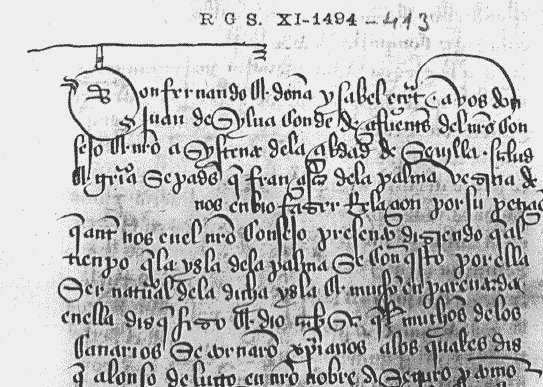 R G S. XI-1494 - 413
Don fernando & doña ysabel etc̃ a vos don
Juan de Sylua conde de çifuent̃s del nr̃o con
sejo & nr̃o asystente dela çibdad de Seuilla. salud
& graçia Sepades q̃ fran de la palma vezina de
nos enbio fazer Relaçion por su petiçiõ
q̃ ant̃ nos en el nr̃o Consejo presento diziendo q̃ al
tienpo q̃ la ysla dela palma Se conq̃sto por ella
Ser natural dela dicha ysla & mucho en parentada
enella dis q̃ fizo & dio q̃ muchos delos
Canarios Se tornarõ xp̃ianos alos quales dis
q̃ alonso de lugo en nr̃o nonbre dio Seguro y como